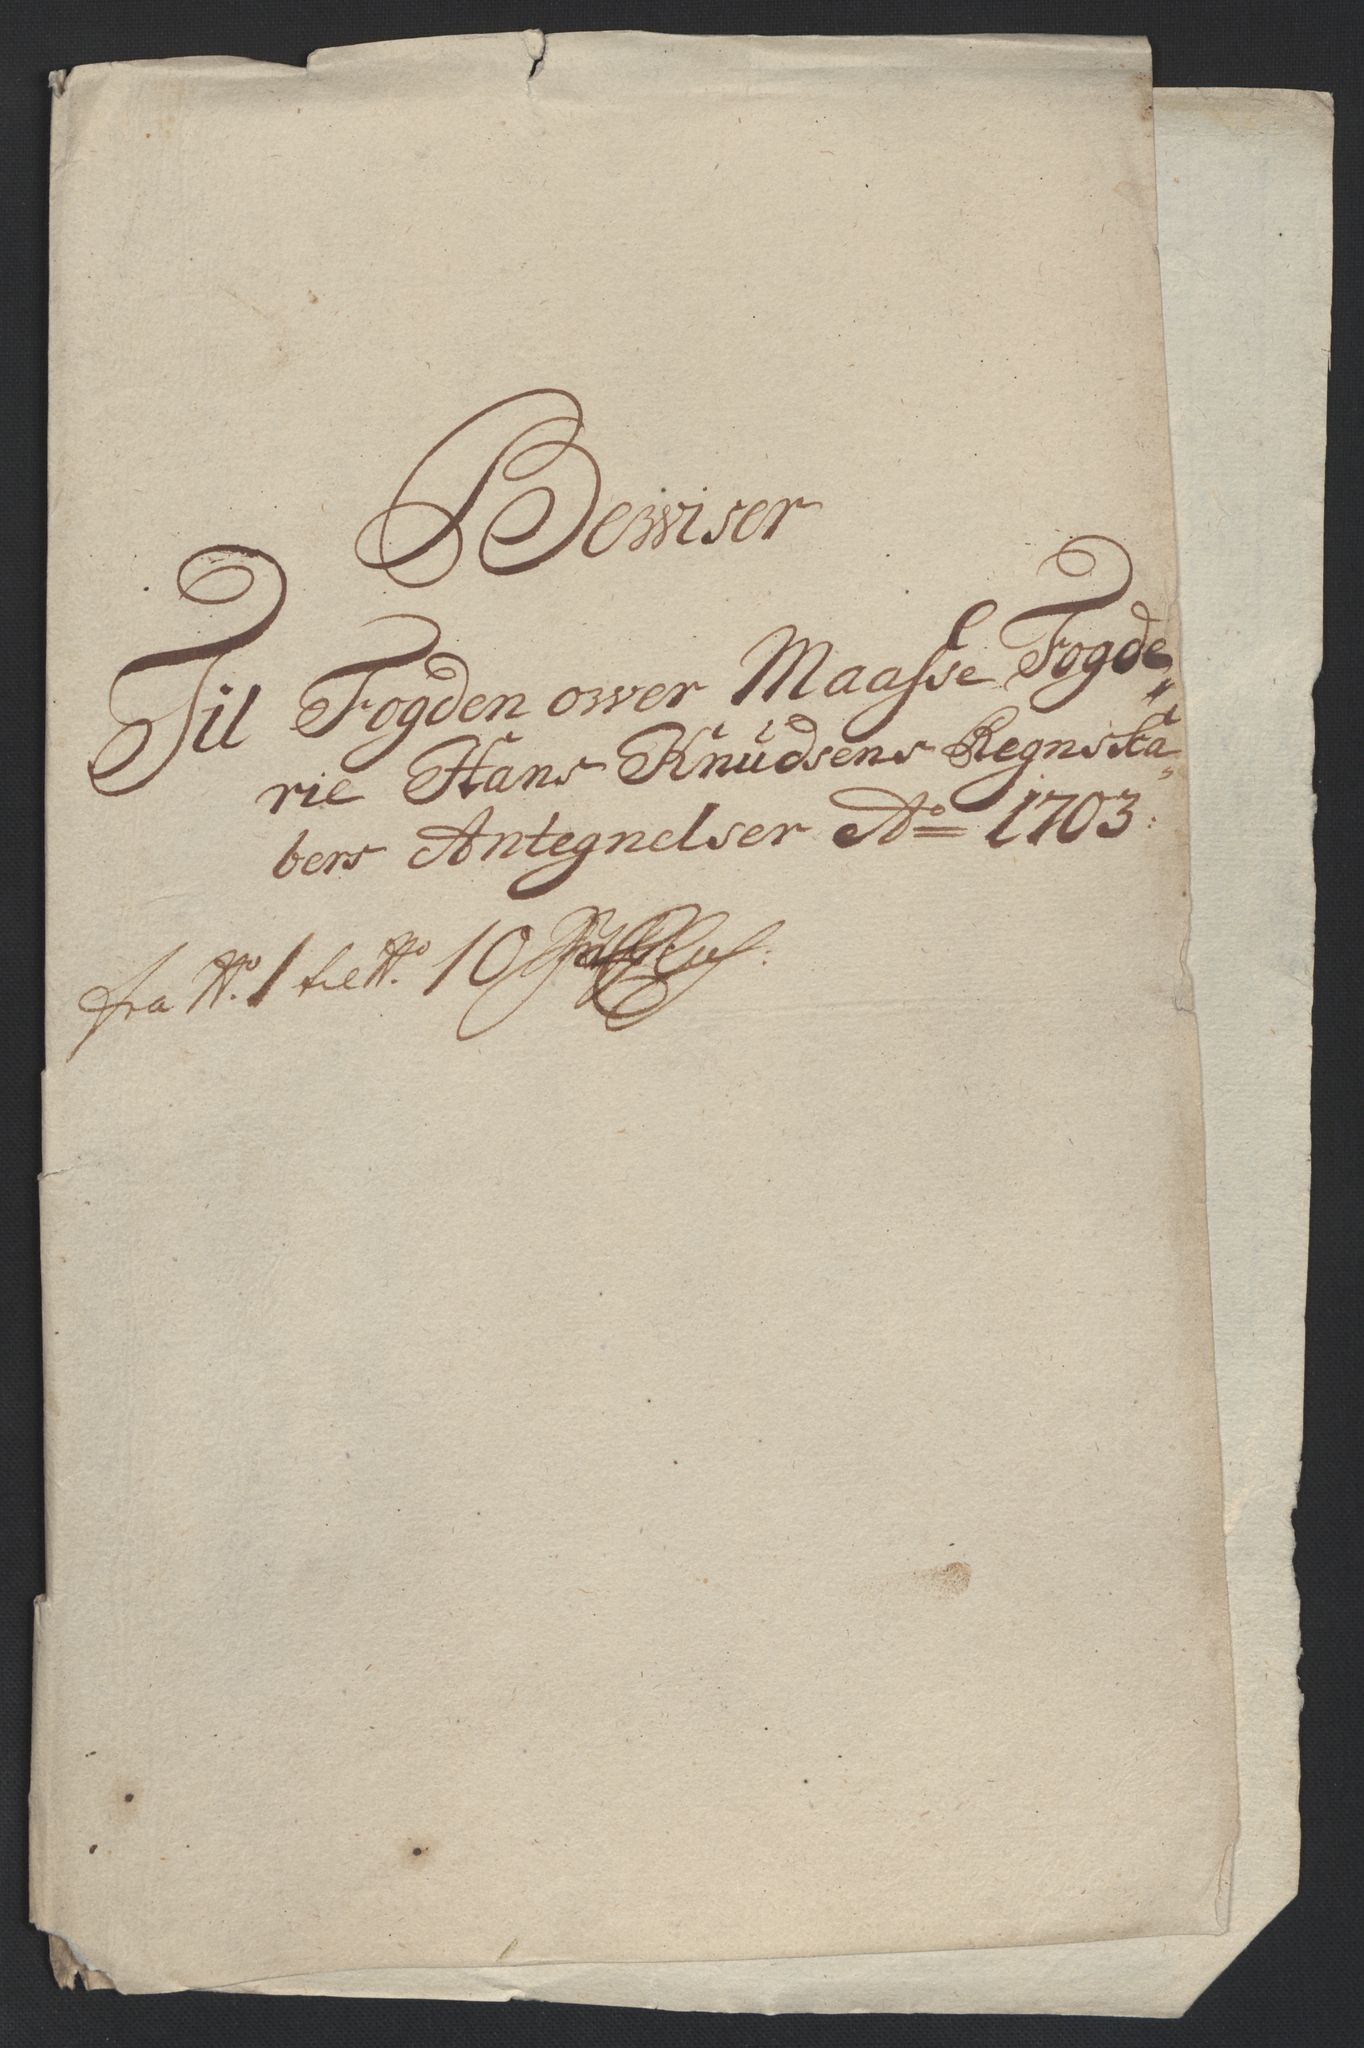 Bewiser
Til Fogden ower Maasse Fogde„
rie Hans Knúdsens Regnska„
bers Antegnelser Ao 1703.
fra No. 1 til No. 10